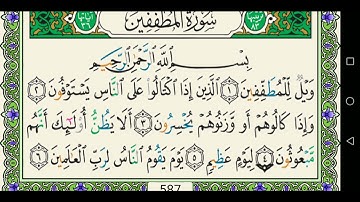 آياتها ٣٦
سُورَةُ الْمُطَفِّفِينَ
ترتيبها ٨٣
بِسْمِ اللَّهِ الرَّحْمَٰنِ الرَّحِيمِ
وَيْلٌ لِلْمُطَفِّفِينَ ١ الَّذِينَ إِذَا اكْتَالُوا عَلَى النَّاسِ يَسْتَوْفُونَ ٢
وَإِذَا كَالُوهُمْ أَوْ وَزَنُوهُمْ يُخْسِرُونَ ٣ أَلَا يَظُنُّ أُولَٰئِكَ أَنَّهُمْ
مَبْعُوثُونَ ٤ لِيَوْمٍ عَظِيمٍ ٥ يَوْمَ يَقُومُ النَّاسُ لِرَبِّ الْعَالَمِينَ ٦
587